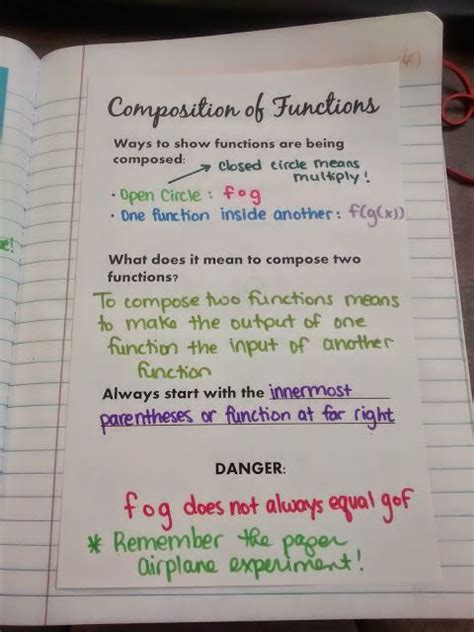 Composition of Functions
Ways to show functions are being
composed:
→ closed circle means
multiply!
• Open Circle : f∘g
• One function inside another: f(g(x))
e!
What does it mean to compose two
functions?
To compose two functions means
to make the output of one
function the input of another
function
Always start with the innermost
parentheses or function at far right
DANGER:
f∘g does not always equal g∘f
* Remember the paper
airplane experiment!